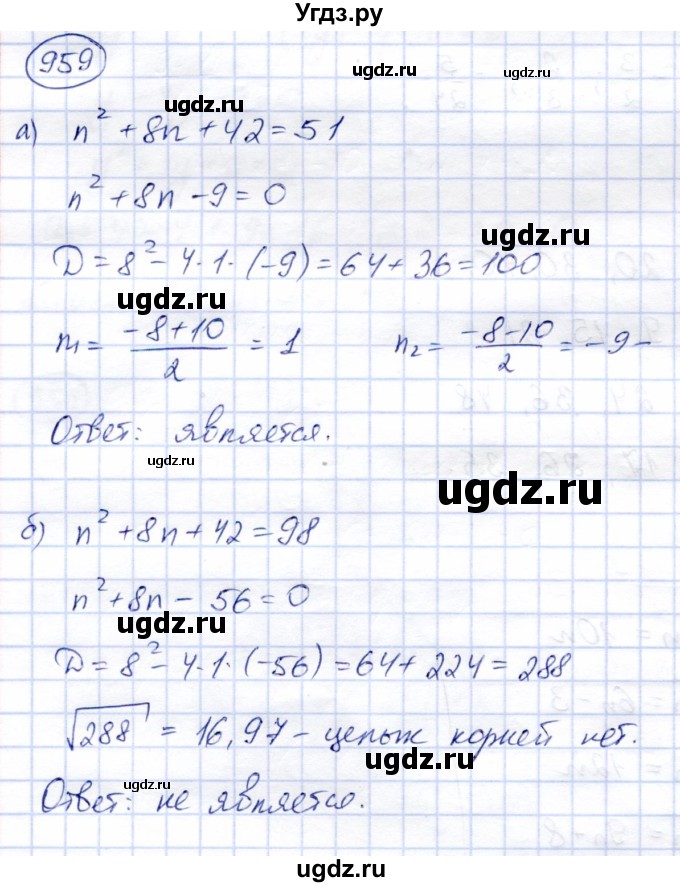 Угдз.ру
959
ugdz.ru ugdz.ru
ugdz.ru
а) n² + 8n + 42 = 51
n² + 8n - 9 = 0
ugdz.ru
D = 8² - 4·1·(-9) = 64 + 36 = 100
ugdz.ru
n₁ = (-8+10)/2 = 1 n₂ = (-8-10)/2 = -9 -
ugdz.ru ugdz.ru
Ответ: является.
ugdz.ru
ugdz.ru
ugdz.ru
б) n² + 8n + 42 = 98
n² + 8n - 56 = 0
ugdz.ru
D = 8² - 4·1·(-56) = 64 + 224 = 288
√288 = 16,97 - целых корней нет.
ugdz.ru
ugdz.ru
Ответ: не является.
ugdz.ru
ugdz.ru